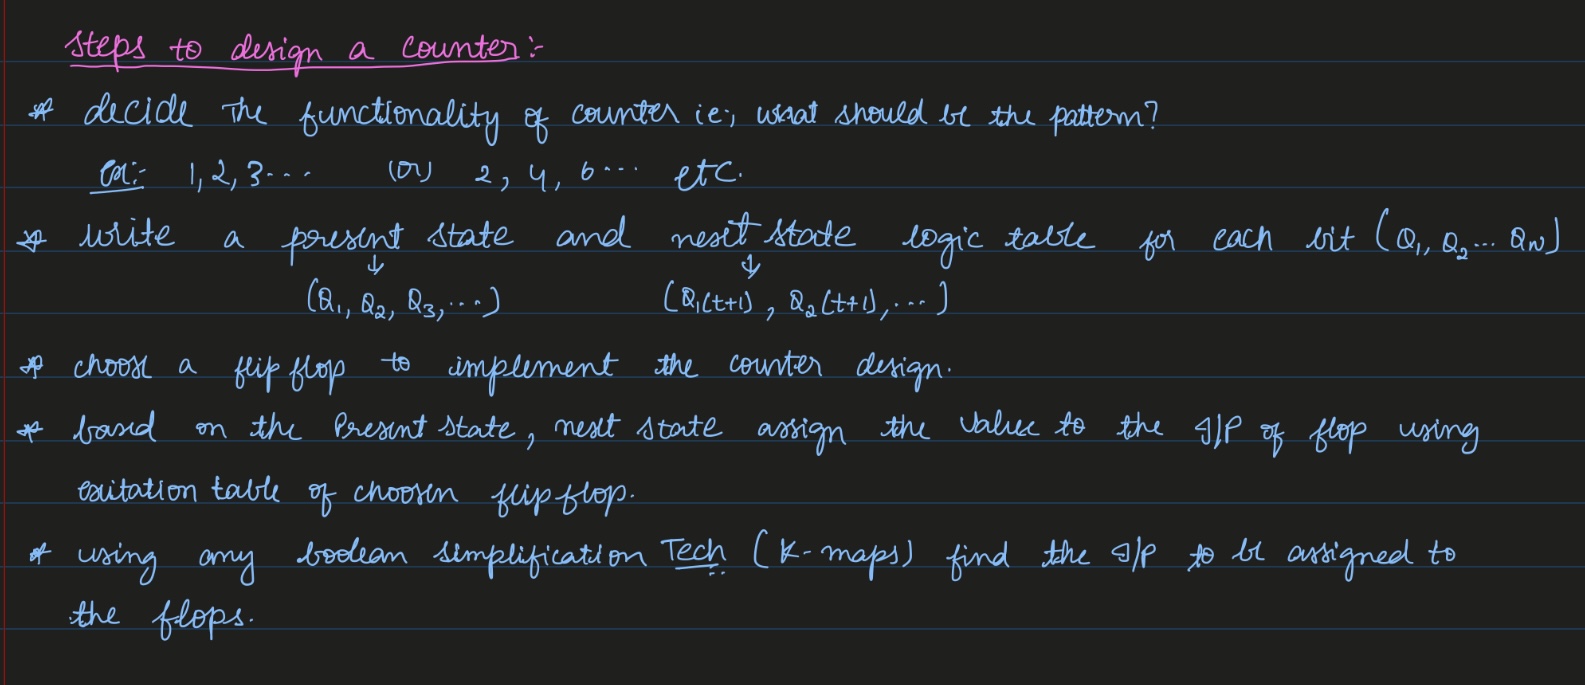 Steps to design a counter:-
* decide the functionality of counter ie;, what should be the pattern?
ex:- 1, 2, 3--- (or) 2, 4, 6--- etc.
* write a present state and next state logic table for each bit (Q1, Q2... QN)
↓ ↓
(Q1, Q2, Q3, ...) (Q1(t+1), Q2(t+1), ...)
* choose a flip flop to implement the counter design.
* based on the Present state, next state assign the value to the I/P of flop using
exitation table of choosen flip flop.
* using any boolean simplification Tech (K-maps) find the I/P to be assigned to
the flops.